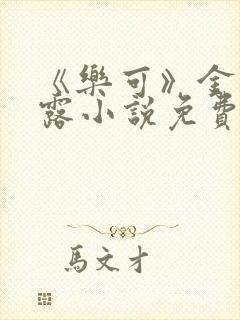 《樂可》金
露小說免費
馬文才